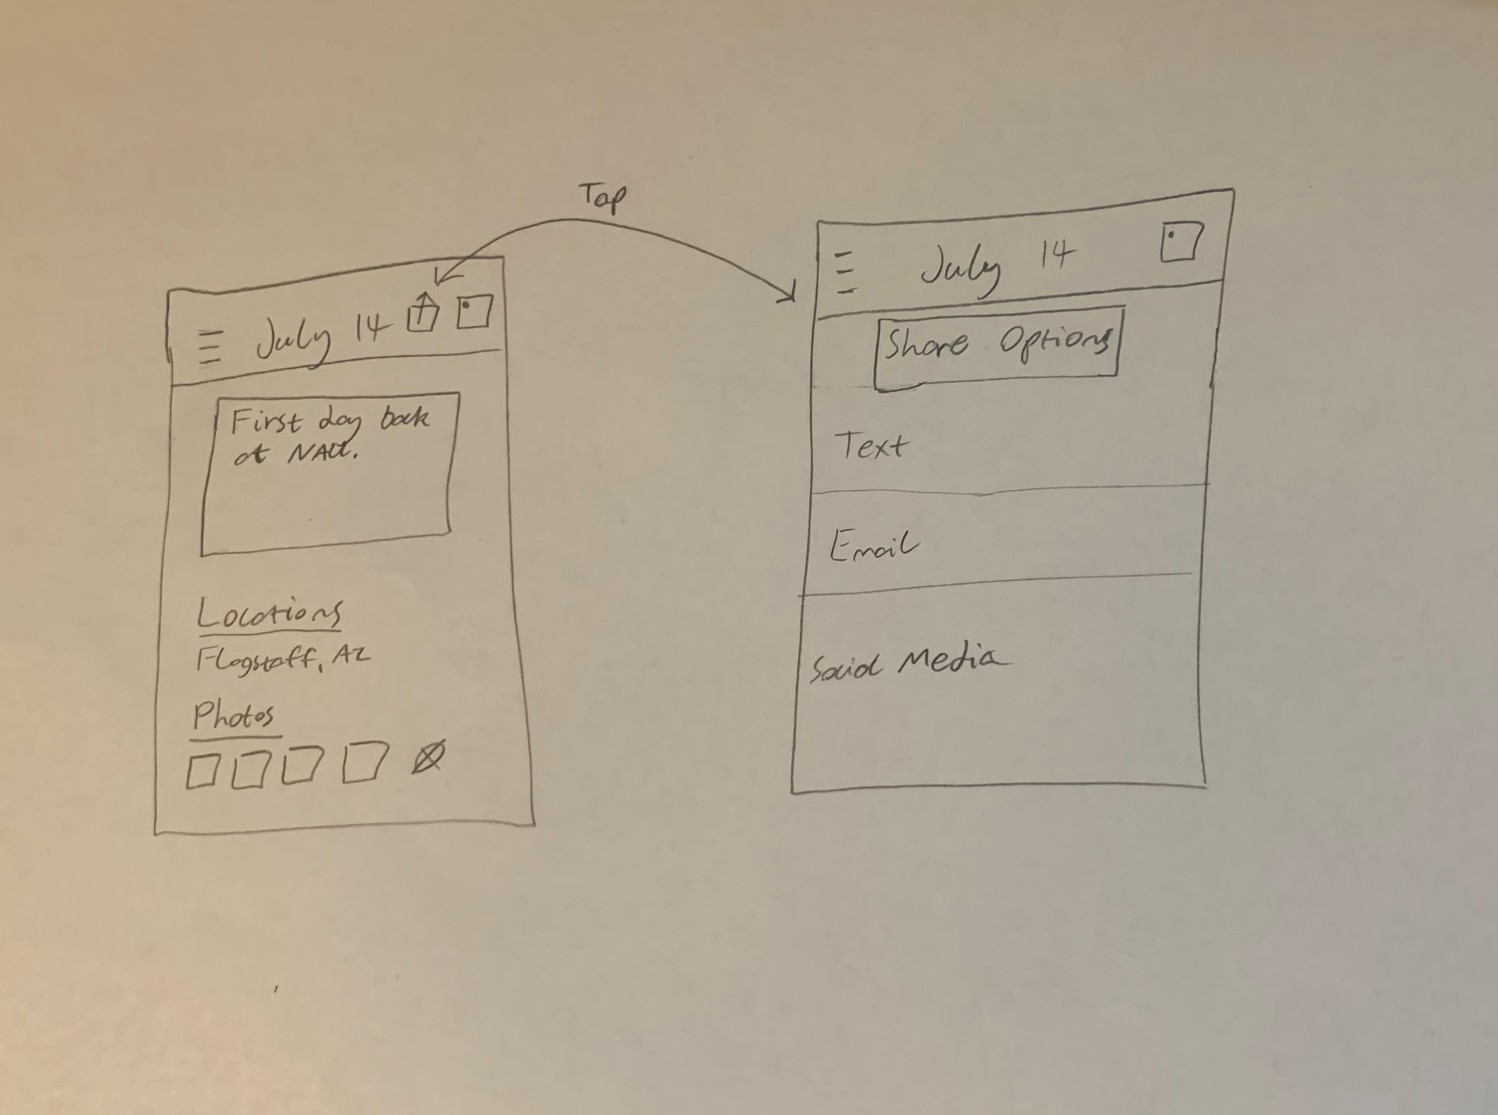 Tap
July 14
First day back
at NAU.
Locations
Flagstaff, AZ
Photos
July 14
Share Options
Text
Email
Social Media